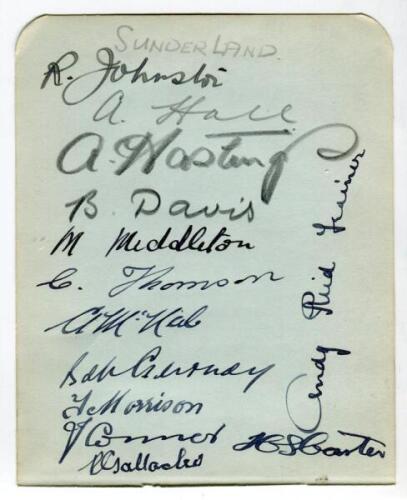 SUNDERLAND.
R. Johnston
A. Hall
A. Hastings
B. Davis
M Middleton
C. Thomson
A McNab
Bob Gurney
T Morrison
J Connor
H S Carter
P Gallacher
Andy Reid Trainer